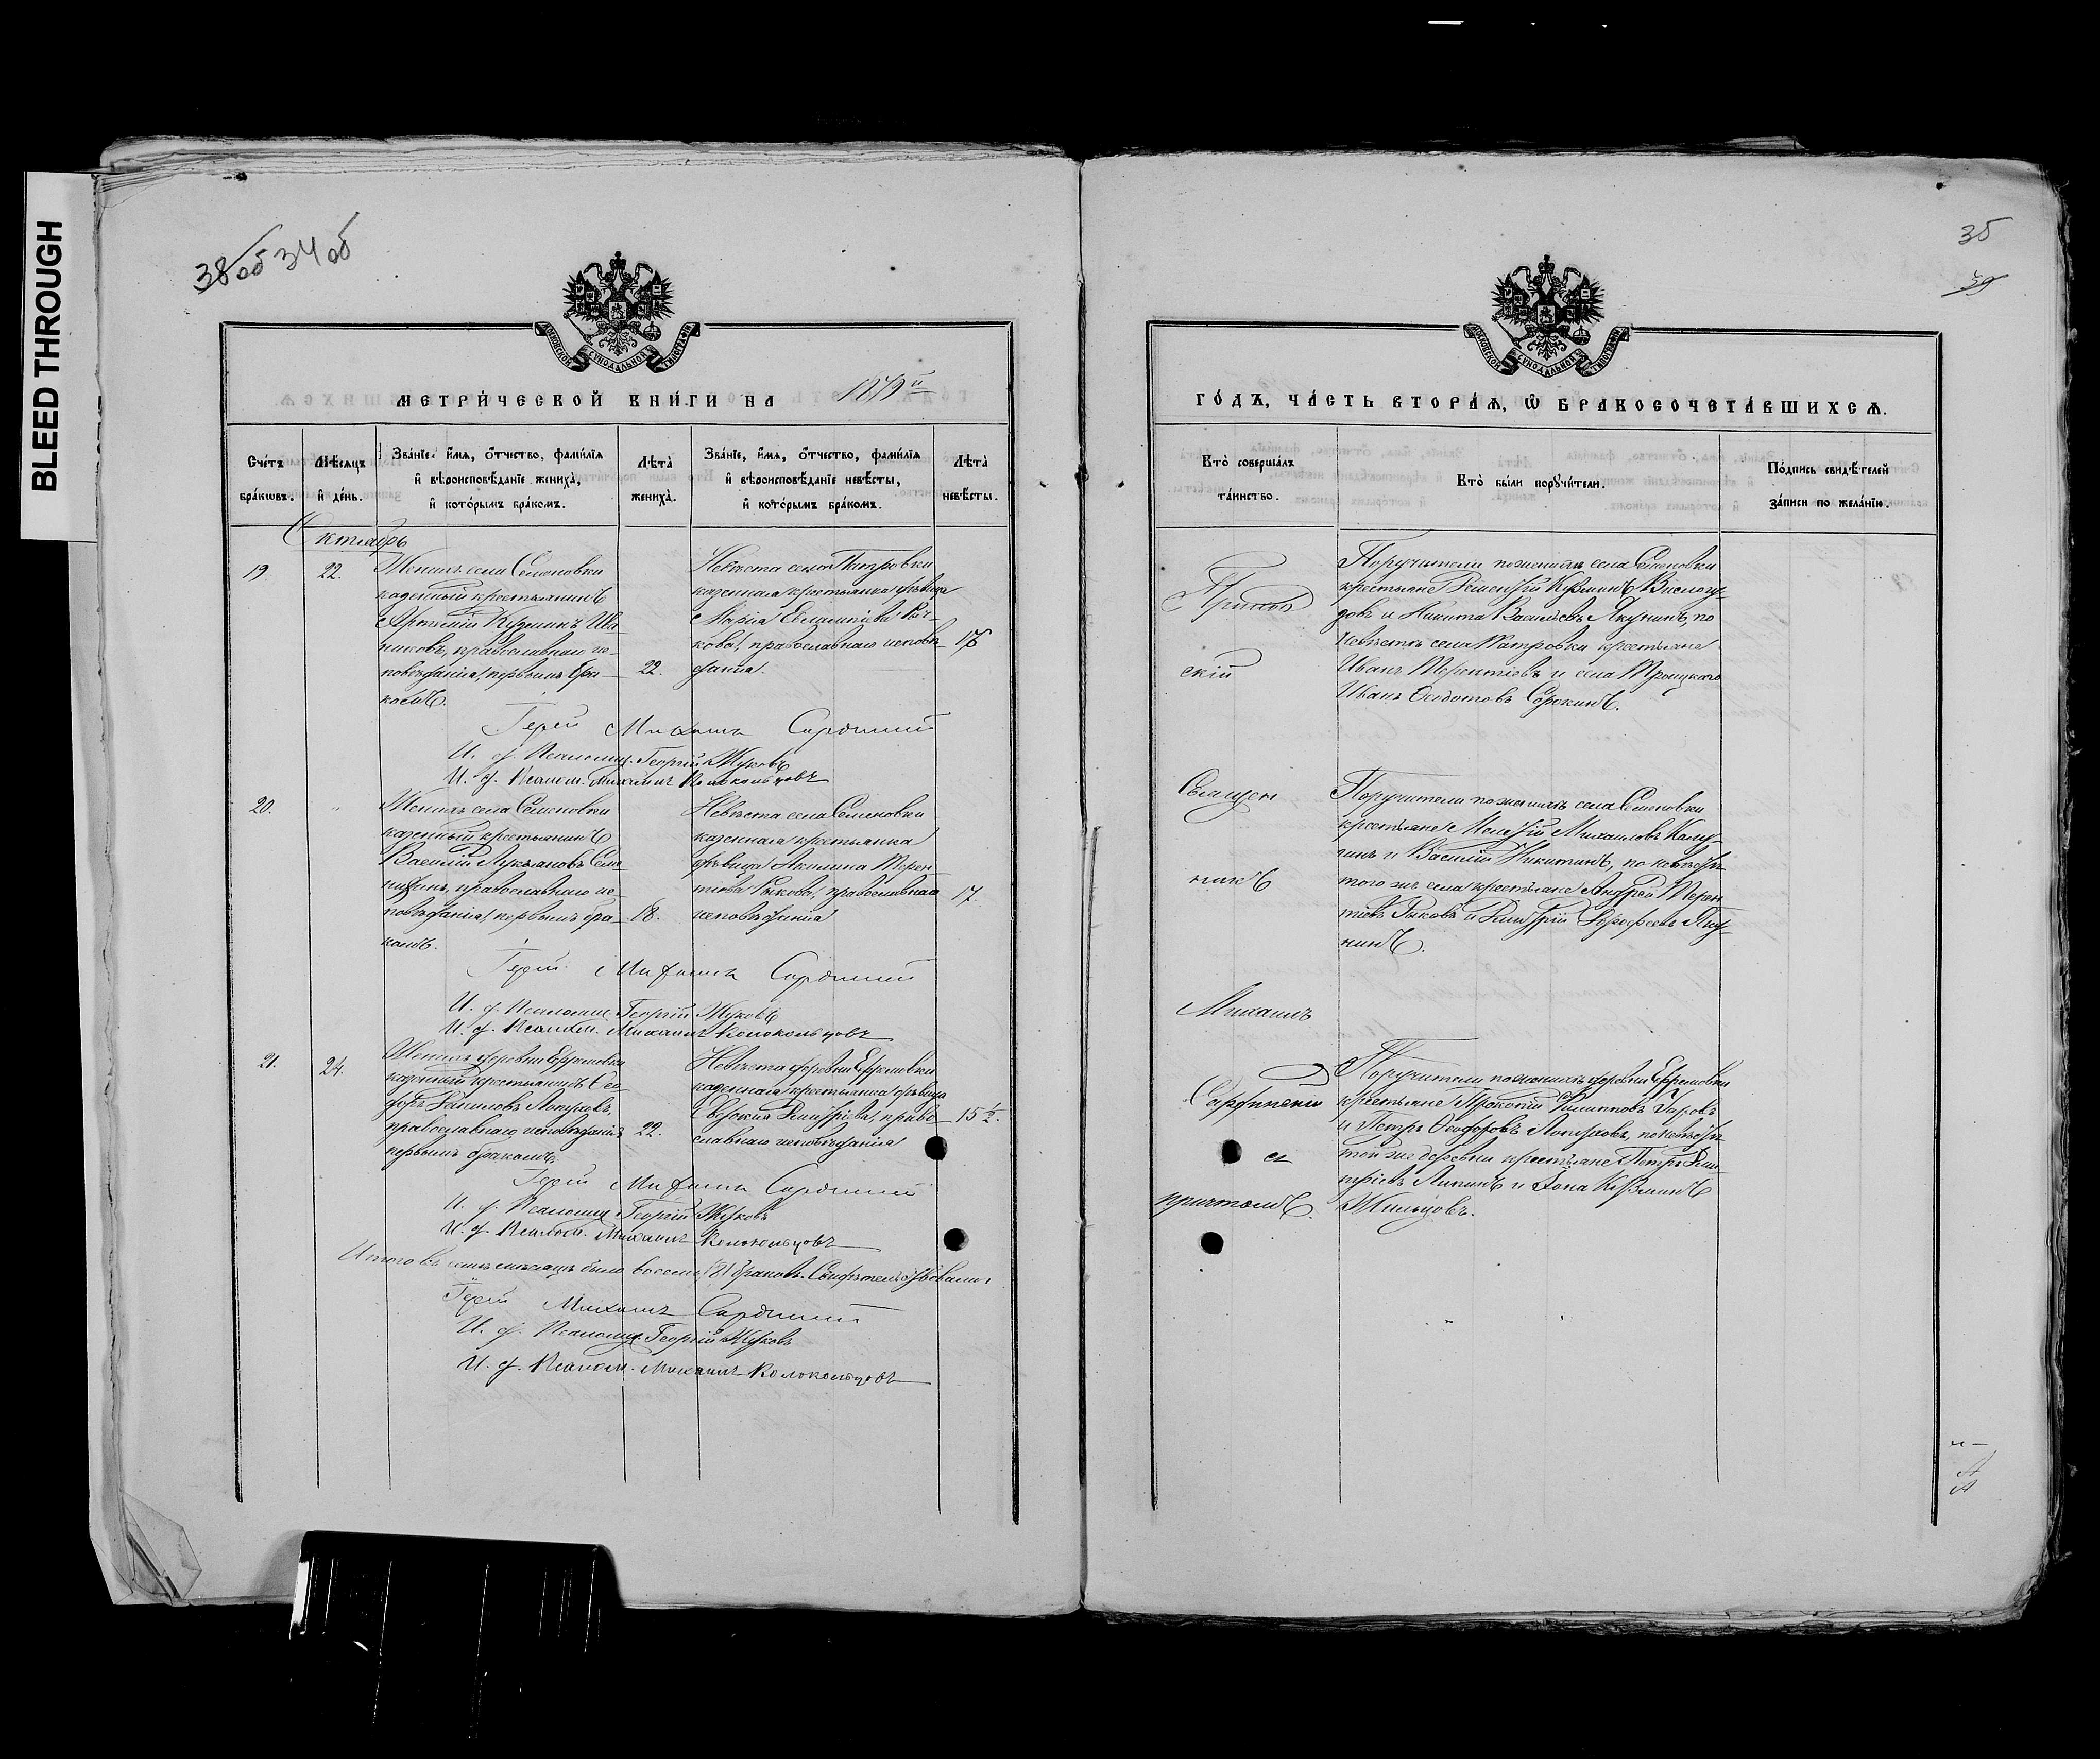 BLEED THROUGH
38 об 34 об
МОСКОВСКОЙ СѴНОДАЛЬНОЙ ТИПОГРАФІИ
МЕТРИ́ЧЕСКОЙ КНИ́ГИ НА 1879 й
Сче́тъ бра́кωвъ.
Мѣ́сѧцъ и҆ де́нь.
Зва́нїе, и҆́мѧ, ѻ҆́тчество, фами́лїѧ и҆ вѣроисповѣ́данїе жениха̀, и҆ кото́рымъ бра́комъ.
Лѣта̀ жениха̀.
Зва́нїе, и҆́мѧ, ѻ҆́тчество, фами́лїѧ и҆ вѣроисповѣ́данїе невѣ́сты, и҆ кото́рымъ бра́комъ.
Лѣта̀ невѣ́сты.
Октябрь
19. 22.
Женихъ села Семеновки
казенный крестьянинъ
Кузминъ Ива-
никовъ, православнаго ис-
повѣданія, первымъ бра-
комъ.
22.
Невѣста села Петровки
казенная крестьянка дѣвица
Марія Евлампіева
православнаго исповѣ-
данія.
17
Іерей Михаилъ
И. д. Псаломщ. Георгій Жуковъ
И. д. Псалом. Михаилъ Колокольцовъ
20. "
Женихъ села Семеновки
казенный крестьянинъ
Василій Лукьяновъ
православнаго ис-
повѣданія, первымъ бра-
комъ.
18.
Невѣста села Семеновки
казенная крестьянка
дѣвица Акилина Терен-
тіева Рыкова, православнаго
исповѣданія
17.
Іерей Михаилъ
И. д. Псаломщ. Георгій Жуковъ
И. д. Псалом. Михаилъ Колокольцовъ
21. 24.
Женихъ деревни Ефремовки
казенный крестьянинъ Ѳео-
доръ
православнаго исповѣданія
первымъ бракомъ.
22.
Невѣста деревни Ефремовки
казенная крестьянка дѣвица
Евдокія Димитріева, право-
славнаго исповѣданія
15 ½.
Іерей Михаилъ
И. д. Псаломщ. Георгій Жуковъ
И. д. Псалом. Михаилъ Колокольцовъ
Итого въ семъ мѣсяцѣ было восемь (8) браковъ. Свидѣтельствовали:
Іерей Михаилъ
И. д. Псаломщ. Георгій Жуковъ
И. д. Псалом. Михаилъ Колокольцовъ
35
39
МОСКОВСКОЙ СѴНОДАЛЬНОЙ ТИПОГРАФІИ
ГО́ДЪ, ЧА́СТЬ ВТОРА́Ѧ, Ѽ БРАКОСОЧЕТА́ВШИХСѦ.
Кто̀ соверша́лъ та́инство.
Кто̀ бы́ли порꙋчи́тели.
По́дпись свидѣ́телей за́писи по жела́нїю.
Приход
скій
Священ
никъ
Михаилъ
съ
причтомъ.
Поручители по женихѣ села Семеновки
крестьяне Кузминъ Вислогу-
зовъ и Никита Васильевъ Якунинъ, по
невѣстѣ села Петровки крестьяне
Иванъ Терентіевъ и села Троицкаго
Иванъ Ѳедотовъ Сорокинъ.
Поручители по женихѣ села Семеновки
крестьяне Михаиловъ Калу-
гинъ и Василій Никитинъ, по невѣстѣ
того же села крестьяне Андрей Терен-
тіевъ Рыковъ и Димитрій Дорофеевъ Яку-
нинъ.
Поручители по женихѣ деревни Ефремовки
крестьяне Прокопій Филипповъ
и Петръ Ѳеодоровъ по невѣстѣ
той же деревни крестьяне Петръ Дим-
итріевъ и Іона Кузминъ
Жильцовъ.